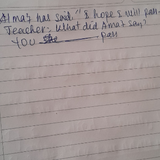 Almas has said "I hope I will pass.
Teacher: What did Almas say?
You she ______ pass